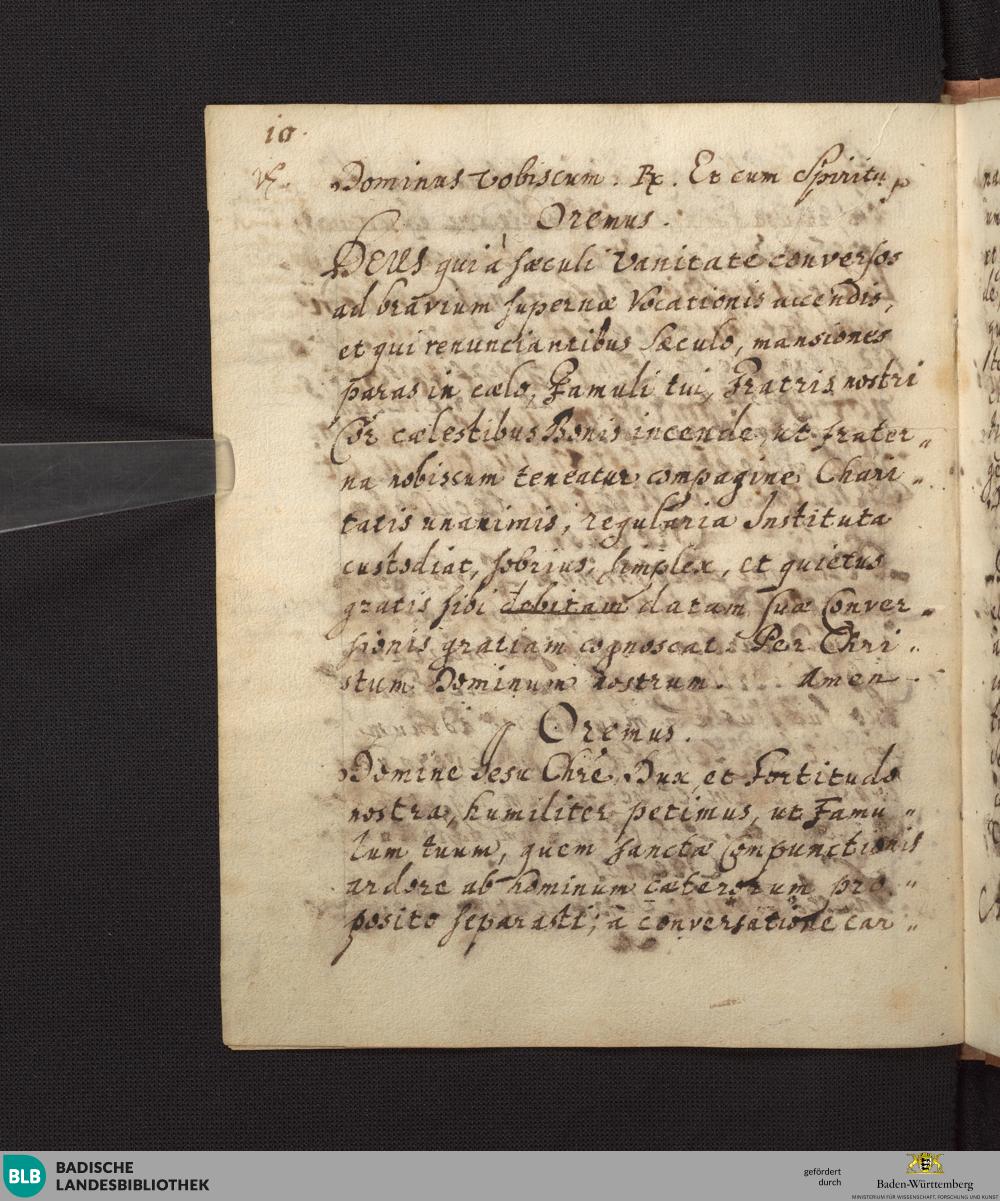 10.
℣. Dominus vobiscum. ℟. Et cum Spiritu
Oremus.
DEUS qui à sæculi vanitate conversos
ad bravium supernæ Vocationis accendis,
et qui renunciantibus sæculo, mansiones
paras in cælo, Famuli tui, Fratris nostri
Cor cælestibus Bonis incende, ut frater„
na nobiscum teneatur compagine Chari„
tatis unanimis, regularia Instituta
custodiat, sobrius, simplex, et quietus
gratis sibi debitam datam suæ Conver„
sionis gratiam cognoscat. Per Chri„
stum Dominum nostrum. Amen.
Oremus.
Domine Jesu Chrē, Dux, et Fortitudo
nostra, humiliter petimus, ut Famu„
lum tuum, quem sanctæ Conpunctionis
ardore ab hominum cæterorum pro„
posito separasti; à conversatione car„
BLB
BADISCHE
LANDESBIBLIOTHEK
gefördert
durch
Baden-Württemberg
MINISTERIUM FÜR WISSENSCHAFT, FORSCHUNG UND KUNST